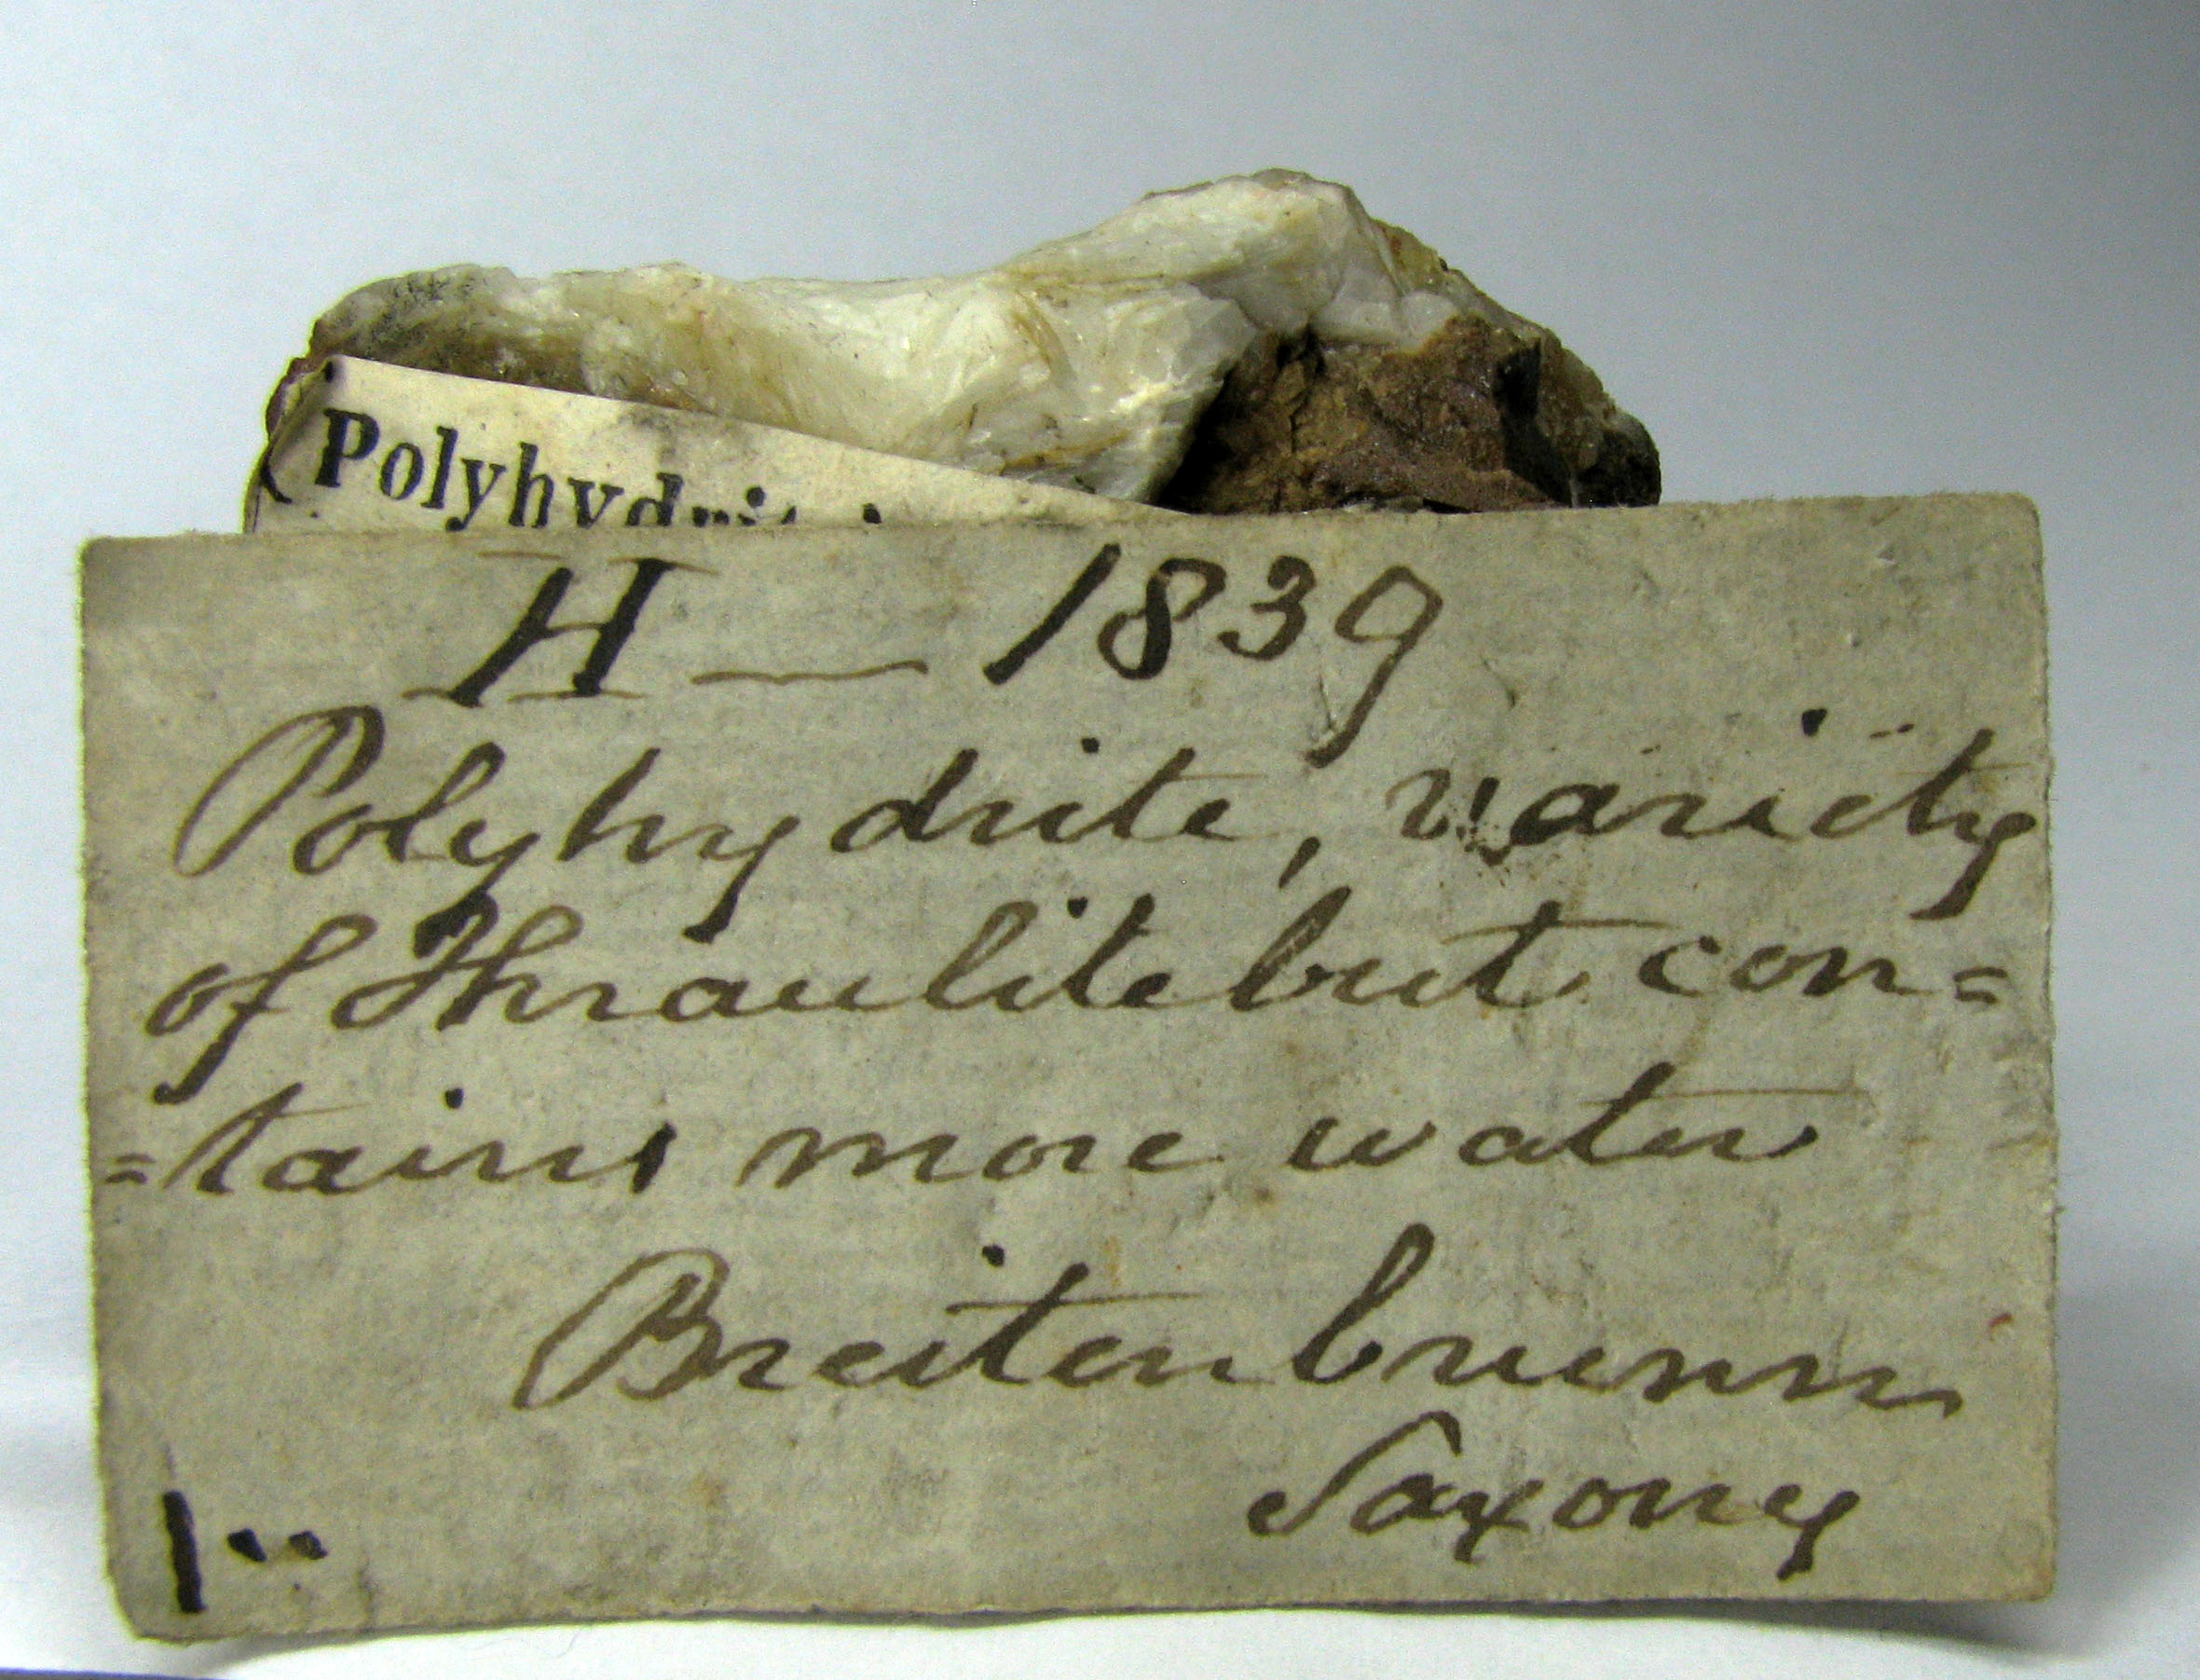 Polyhydrite
H — 1839
Polyhydrite, variety
of Thraulite but con=
=tains more water
Breitenbrunn
Saxony
1..